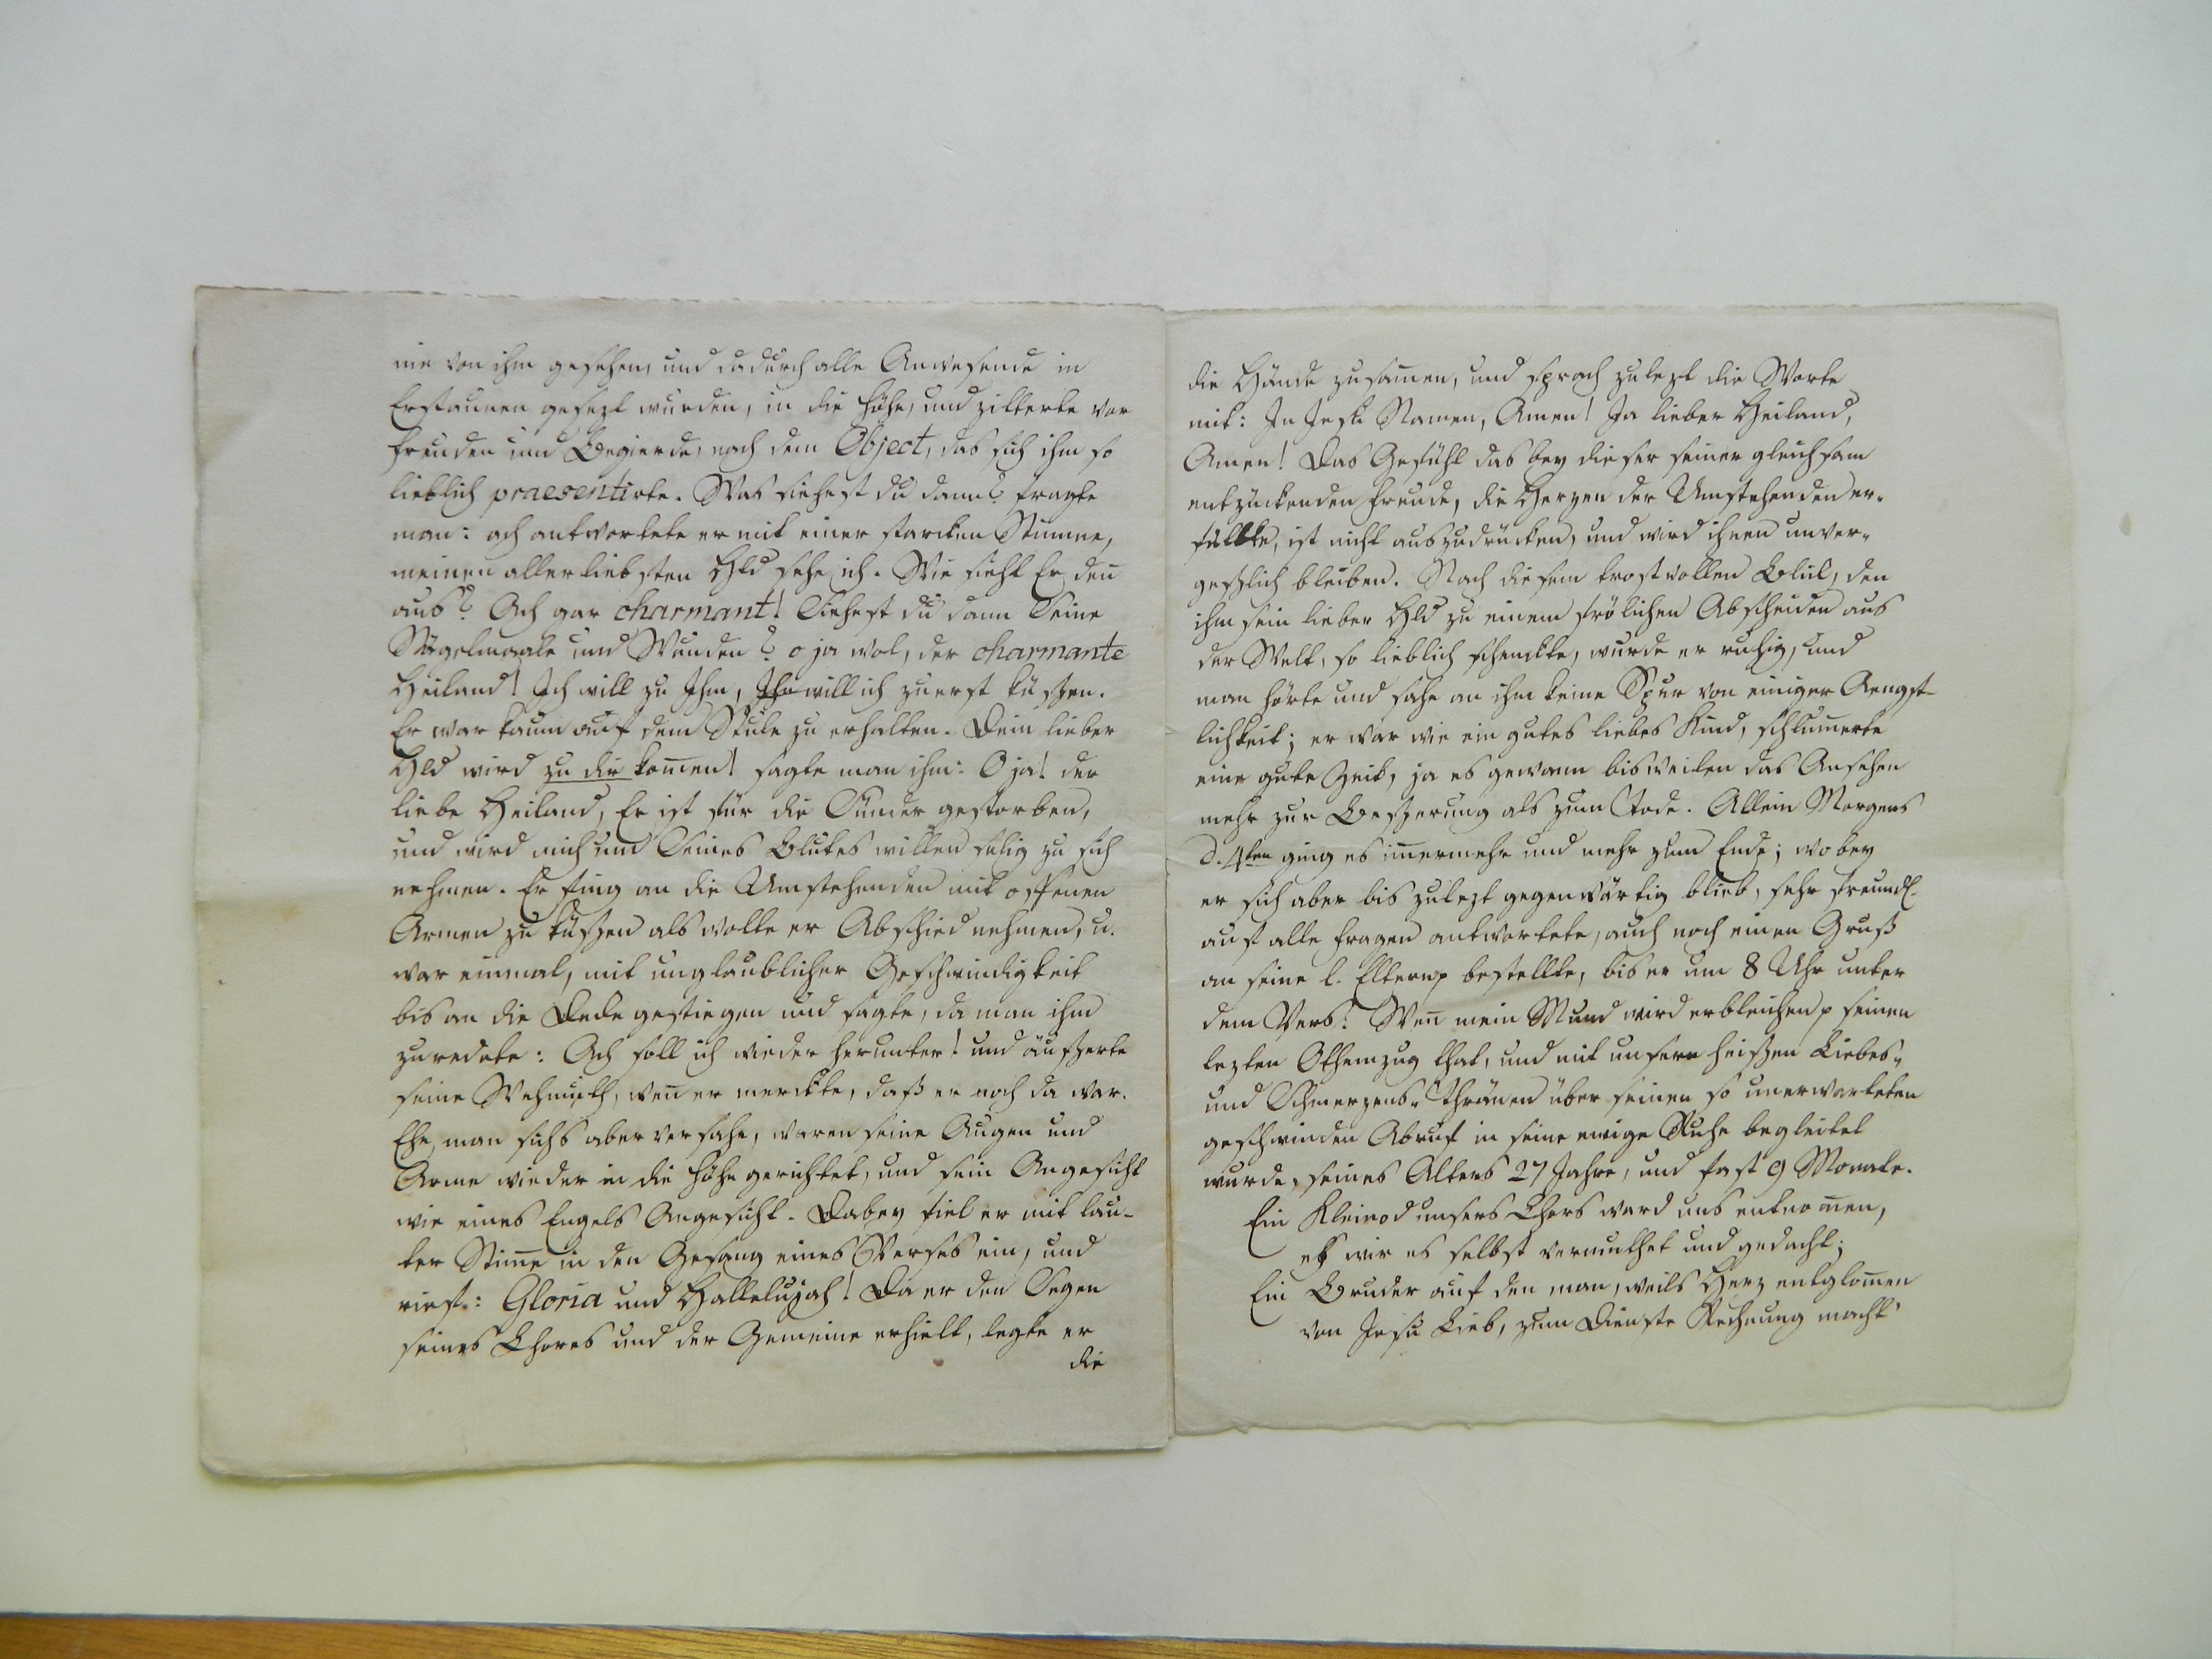 nie von ihm gesehen, und dadurch alle Anwesende in
Erstaunen gesezt wurden, in die Höhe, und zitterte vor
Freuden und Begierde, nach dem Object, das sich ihm so
lieblich praesentirte. Was siehest du dann? fragte
man: ach antwortete er mit einer starcken Stimme,
meinen allerliebsten Hld sehe ich. Wie sieht Er den̅
aus? Ach gar charmant! Siehest du dann Seine
Nägelmaale und Wunden? o ja wol, der charmante
Heiland! Ich will zu Ihm, Ihn will ich zuerst küßen.
Er war kaum auf dem Stule zu erhalten. Dein lieber
Hld wird zu dir kom̅en! sagte man ihm: O ja! der
liebe Heiland, Er ist für die Sünder gestorben,
und wird mich um Seines Blutes willen selig zu sich
nehmen. Er fing an die Umstehenden mit offenen
Armen zu küßen als wolte er Abschied nehmen, u.
war einmal, mit unglaublicher Geschwindigkeit
bis an die Decke gestiegen und sagte, da man ihm
zuredete: Ach soll ich wieder herunter! und äußerte
seine Wehmuth, wen̅ er merckte, daß er noch da war.
Ehe man sichs aber versahe, waren seine Augen und
Arme wieder in die Höhe gerichtet, und sein Angesicht
wie eines Engels Angesicht. Dabey fiel er mit lau-
ter Stim̅e in den Gesang eines Verses ein, und
rief: Gloria und Hallelujah! Da er den Segen
seines Chores und der Gemeine erhielt, legte er
die
die Hände zusam̅en, und sprach zulezt die Worte
mit: In Jesu Namen, Amen! Ja lieber Heiland,
Amen! Das Gefühl das bey dieser seiner gleichsam
entzückenden Freude, die Herzen der Umstehenden er-
füllte, ist nicht auszudrücken, und wird ihnen unver-
geßlich bleiben. Nach diesem trostvollen Blick, den
ihm sein lieber Hld zu einem frölichen Abscheiden aus
der Welt, so lieblich schenckte, wurde er ruhig, und
man hörte und sahe an ihm keine Spur von einiger Aengst-
lichkeit; er war wie ein gutes liebes Kind, schlum̅erte
eine gute Zeit, ja es gewann bisweilen das Ansehen
mehr zur Beßerung als zum Tode. Allein Morgens
d. 4ten ging es im̅ermehr und mehr zum Ende; wobey
er sich aber bis zulezt gegenwärtig blieb, sehr freundl.
auf alle Fragen antwortete, auch noch einen Gruß
an seine l. Eltern p bestellte, bis er um 8 Uhr unter
dem Vers: Wen̅ mein Mund wird erbleichen p seinen
lezten Othemzug that, und mit unsern heißen Liebes-
und Schmerzens-Thränen über seinen so unerwarteten
geschwinden Abruf in seine ewige Ruhe begleitet
wurde, seines Alters 27 Jahre, und fast 9 Monate.
Ein Kleinod unsers Chors ward uns entnom̅en,
eh wir es selbst vermuthet und gedacht;
Ein Bruder auf den man, weils Herz entglom̅en
von Jesu Lieb, zum Dienste Rechnung macht'